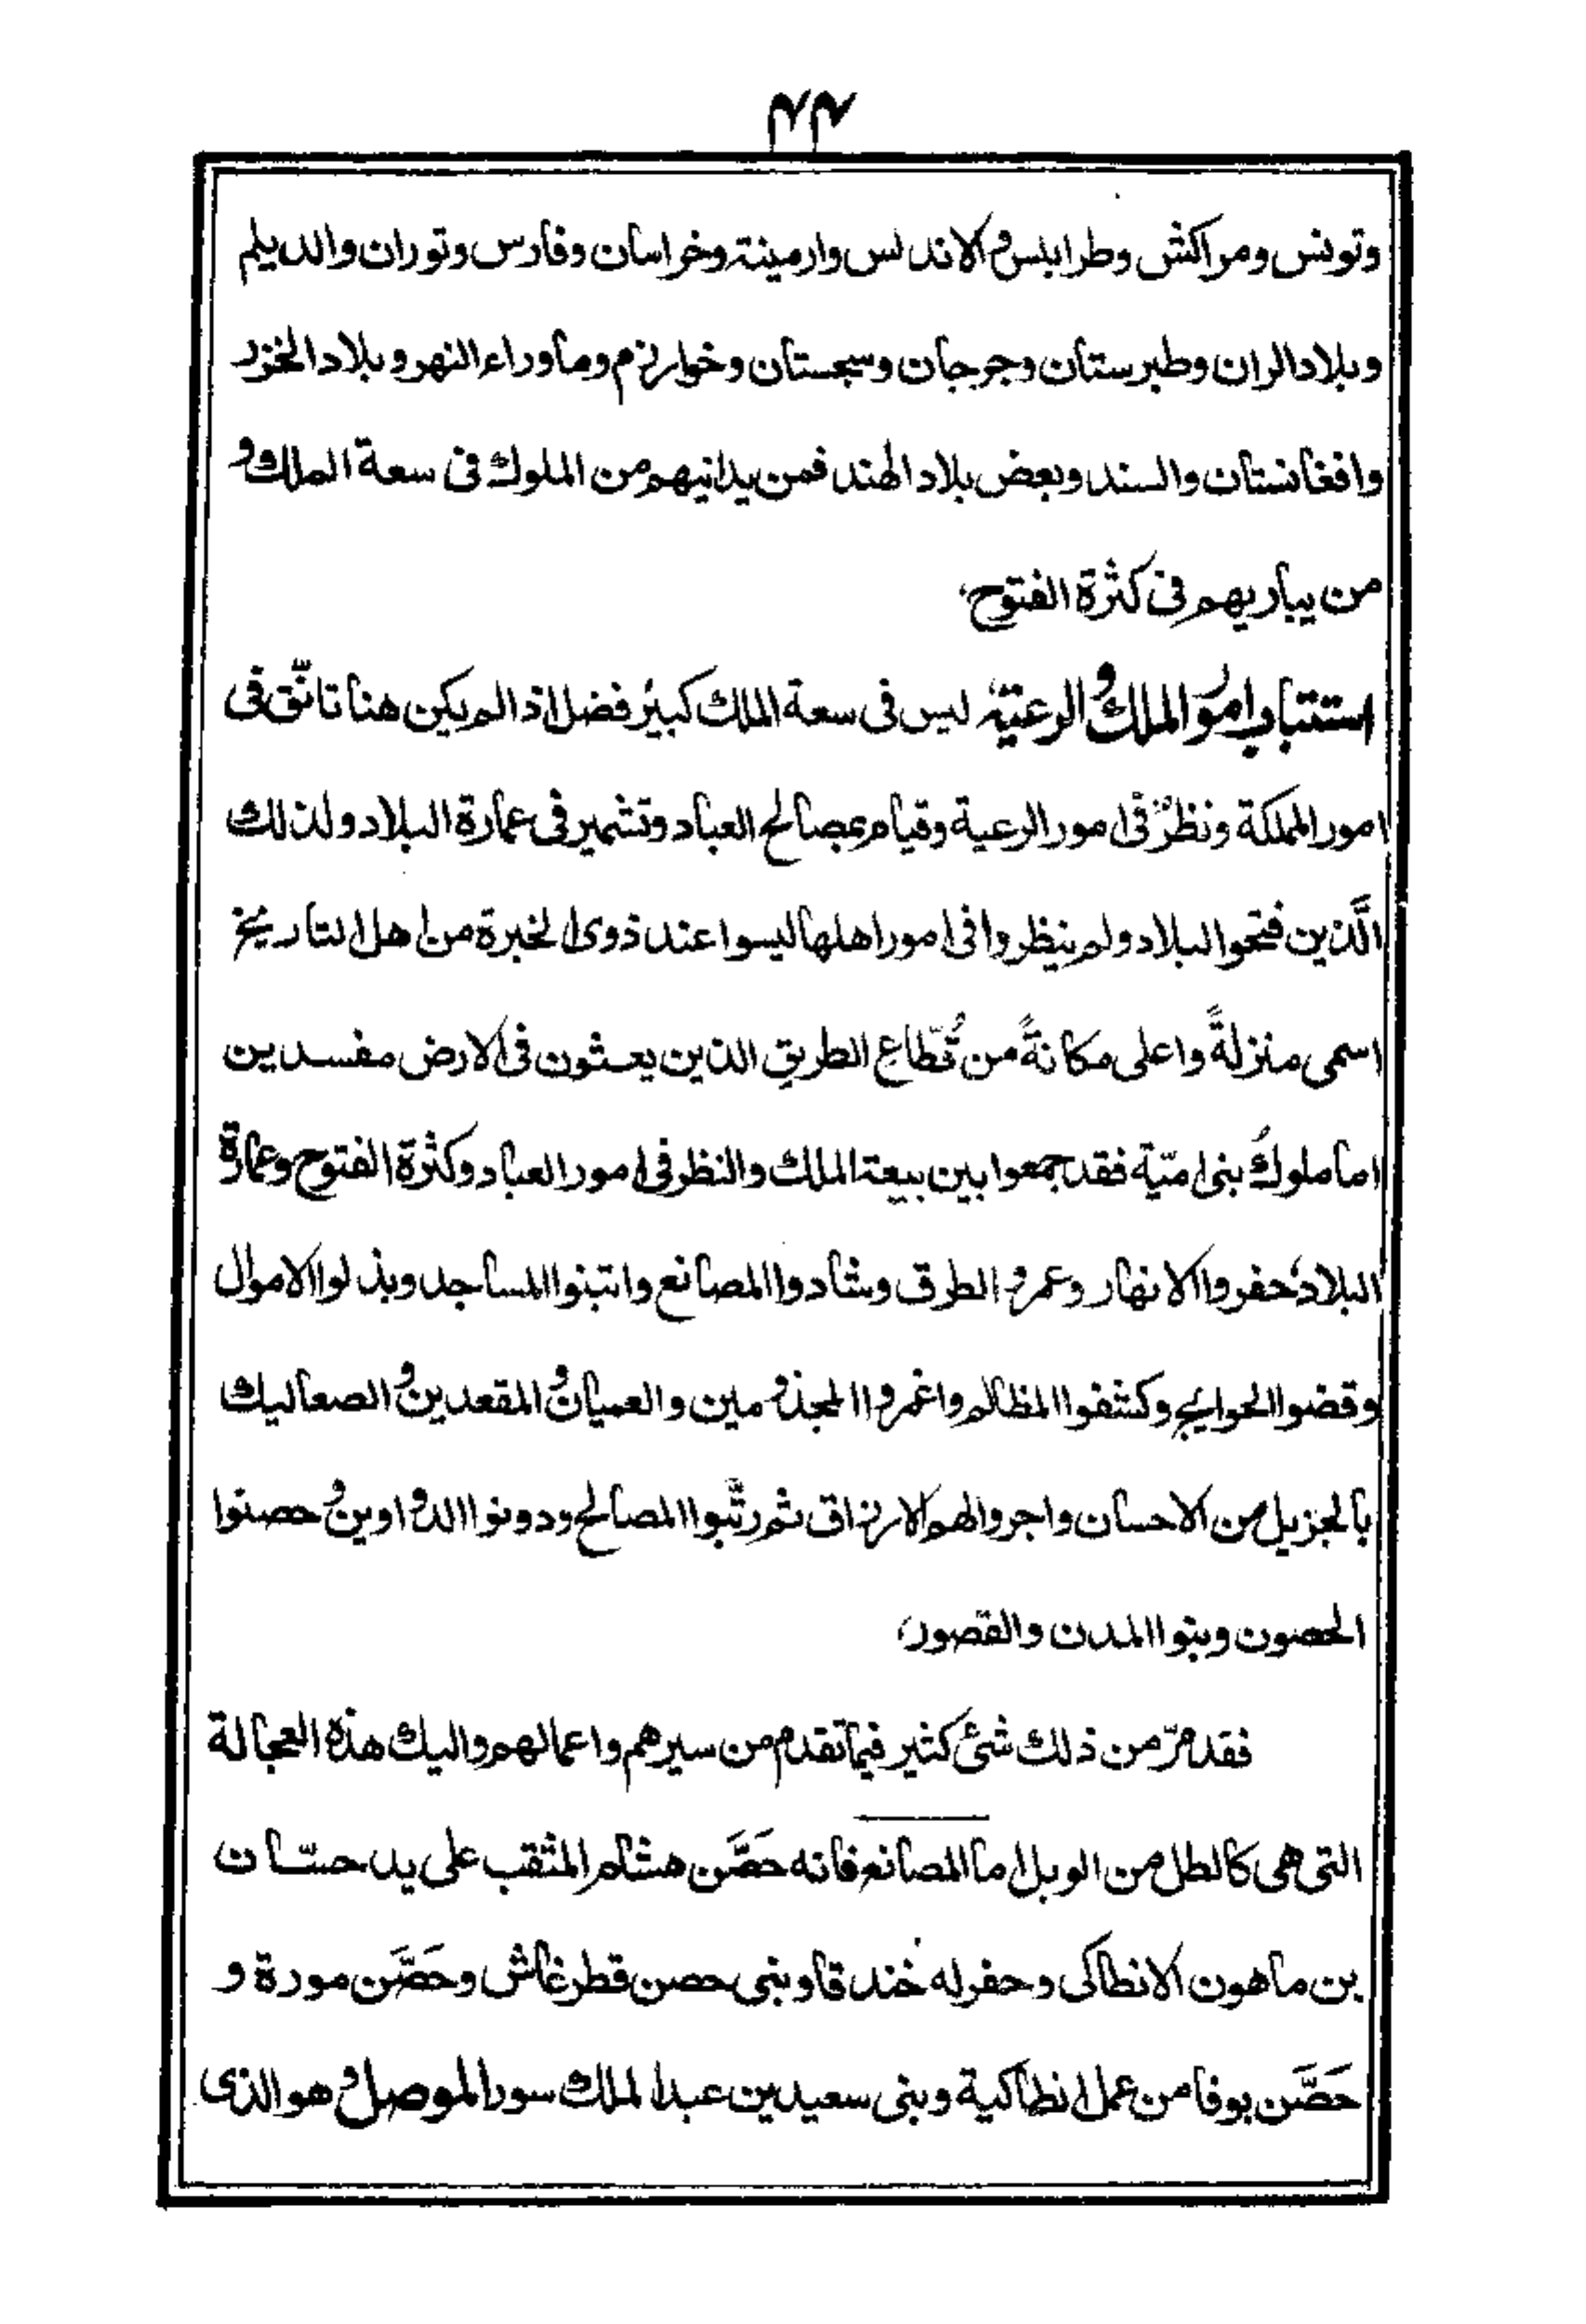 ٤٤
وتونس ومراكش وطرابلس والاندلس وارمينة وخراسان وفارس وتوران والديلم
وبلاد الران وطبرستان وجرجان وسجستان وخوارزم وماوراء النهر وبلاد الخزر
وافغانستان والسند وبعض بلاد الهند فمن يدانيهم من الملوك فى سعة الملك و
من يباريهم فى كثرة الفتوح،
استتباب امور الملك والرعية، ليس فى سعة الملك كبيرُ فضل اذا لم يكن هنا تانّق فى
امور المملكة ونظرٌ فى امور الرعية وقيام بمصالح العباد وتشمير فى عمارة البلاد ولذلك
الَّذين فتحوا البلاد ولم ينظروا فى امور اهلها ليسوا عند ذوى الخبرة من اهل التاريخ
اسمى منزلةً واعلى مكانةً من قُطّاع الطريق الذين يعثون فى الارض مفسدين
اما ملوكُ بنى اميّة فقد جمعوا بين بيعة الملك والنظر فى امور العباد وكثرة الفتوح وعمارة
البلاد، حفروا الانهار وعمروا الطرق وشادوا المصانع وابتنوا المساجد وبذلوا الاموال
وقضوا الحوايج وكشفوا المظالم واغمروا المجذومين والعميان والمقعدين والصعاليك
بالجزيل من الاحسان واجروا لهم الارزاق ثم رتَّبوا المصالح ودونوا الدواوين وحصنوا
الحصون وبنوا المدن والقصور،
فقد مرّ من ذلك شئ كثير فيما تقدم من سيرهم واعمالهم واليك هذه العجالة
التى هى كالطل من الوبل اما المصانع فانه حَصَّن هشام المثقب على يد حسّان
بن ماهون الانطاكى وحفر له خندقا وبنى حصن قطرغاش وحَصَّن مورة و
حَصَّن بوقا من عمل انطاكية وبنى سعيد بن عبد الملك سور الموصل وهو الذى